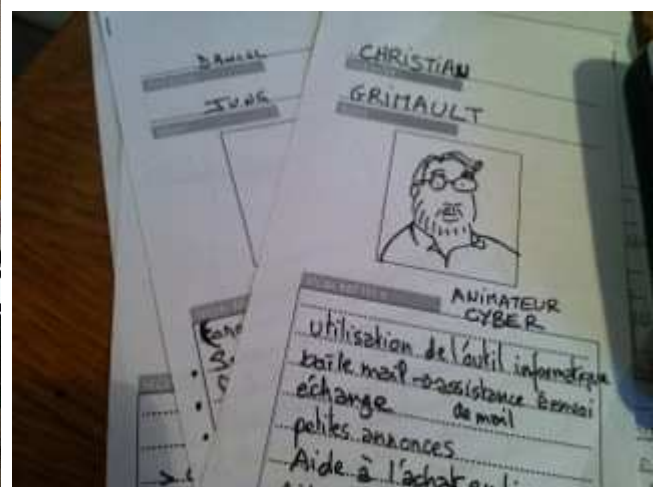 DANIEL
JUNG
CHRISTIAN
GRIMAULT
ANIMATEUR
CYBER
utilisation de l'outil informatique
boîte mail → assistance envoi
échange de mail
petites annonces
Aide à l'achat